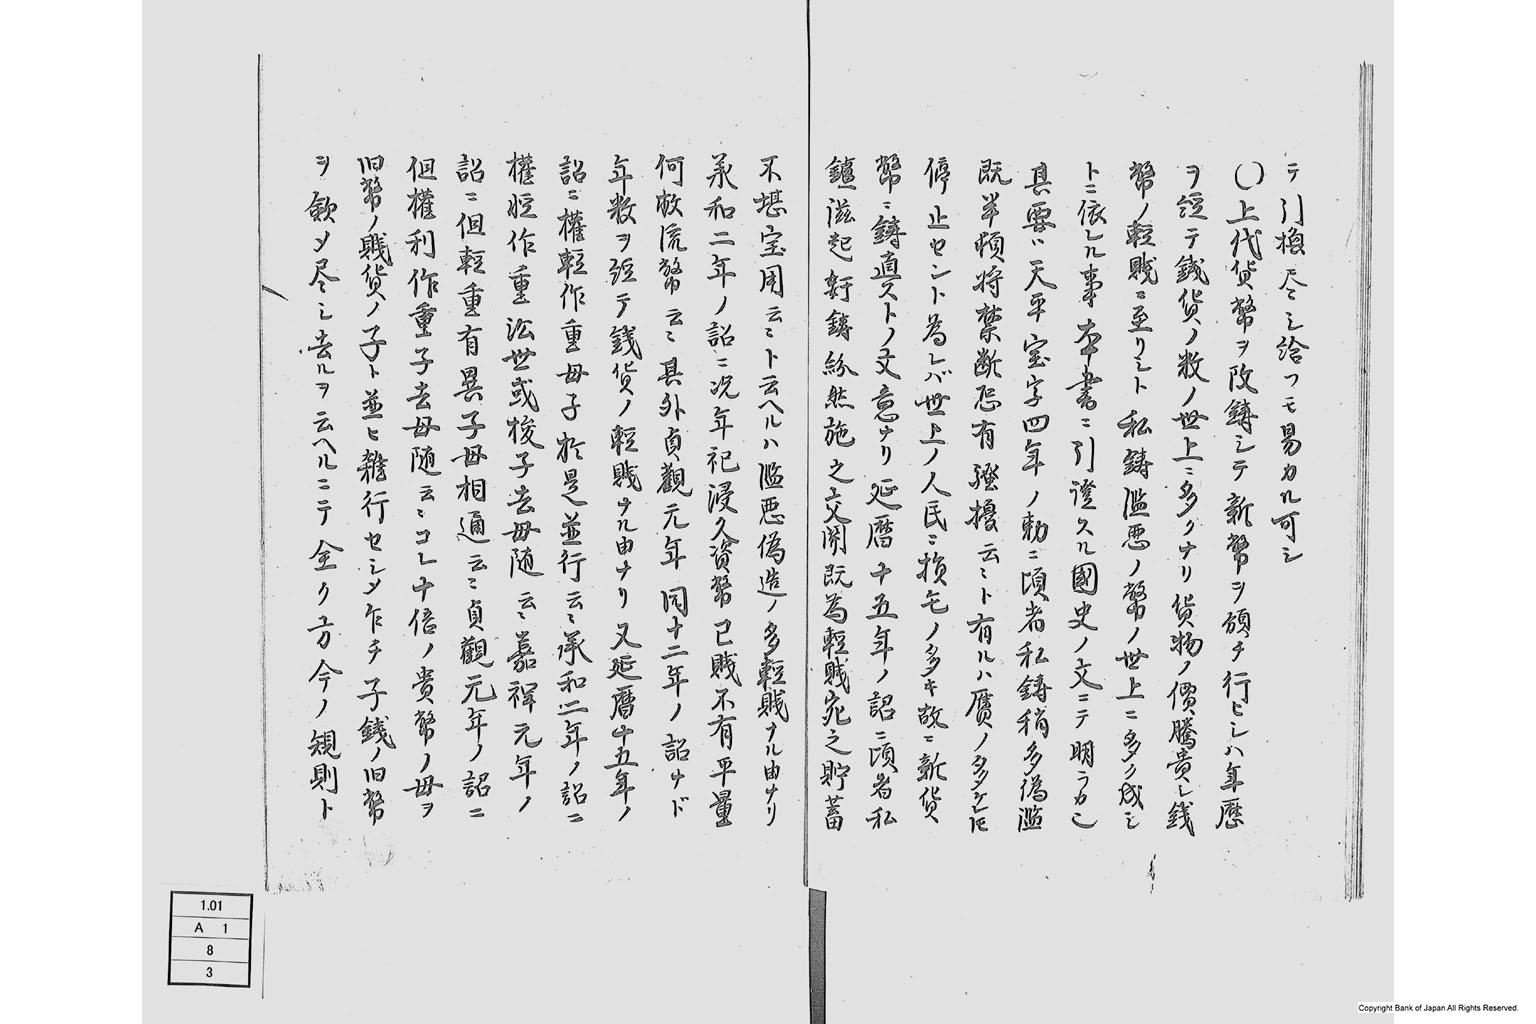 テ引換尽シ給フモ易カル可シ
〇上代貨幣ヲ改鋳シテ新幣ヲ頒チ行ヒシハ年歴
ヲ経テ銭貨ノ数ノ世上ニ多クナリ貨物ノ價騰貴シ銭
幣ノ軽賤ニ至リシト私鋳濫悪ノ幣ノ世上ニ多ク成シ
トニ依レル事本書ニ引證スル國史ノ文ニテ明ラカ也
其要ハ天平宝字四年ノ勅ニ頃者私鋳稍多偽濫
既半頓将禁断恐有騒擾云ミト有ルハ贋ノ多ケレ𪜈
停止セント為レバ世上ノ人民ニ損毛ノ多キ故ニ新貨
幣ニ鋳直ストノ文意ナリ延暦十五年ノ詔ニ頃者私
鑪滋起奸鋳紛然施之交関既為軽賤宛之貯蓄
不堪宝用云ミト云ヘルハ濫悪偽造ノ多軽賤ナル由ナリ
承和二年ノ詔ニ况年祀浸久資幣已賤不有平量
何救流幣云ミ其外貞觀元年同十二年ノ詔ナド
年数ヲ経テ銭貨ノ軽賤ナル由ナリ又延暦十五年ノ
詔ニ權軽作重母子於是並行云ミ承和二年ノ詔ニ
權軽作重沿世或棱子去母随云ミ嘉祥元年ノ
詔ニ但軽重有異子母相通云ミ貞觀元年ノ詔ニ
但權利作重子去母随云ミコレ十倍ノ貴幣ノ母ヲ
旧幣ノ賤貨ノ子ト並ヒ雜行セシメ乍チ子銭ノ旧幣
ヲ斂メ尽シ去ルヲ云ヘルニテ全ク方今ノ規則ト
1.01
A 1
8
3
Copyright Bank of Japan All Rights Reserved.